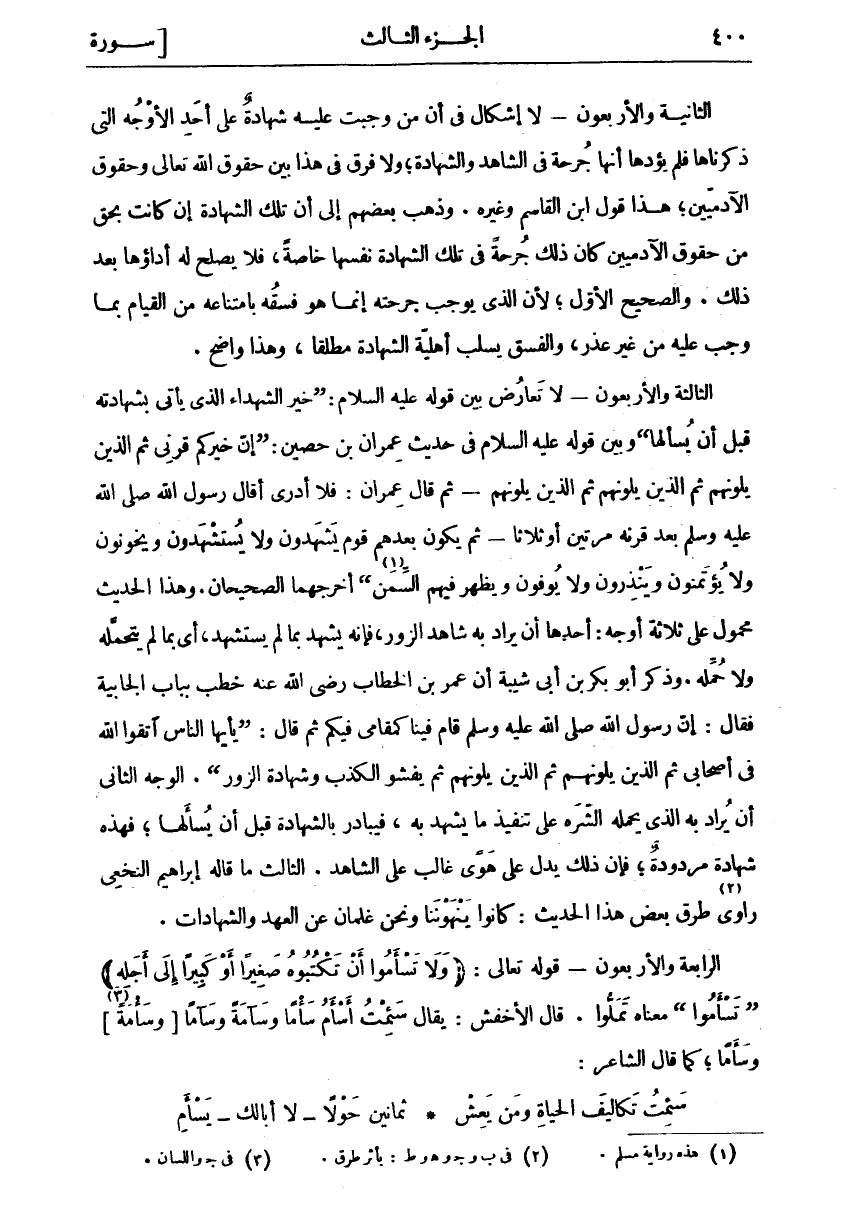 ٤٠٠ الجـزء الثـالث [ســورة
الثانيـة والأربعون – لا إشكال فى أن من وجبت عليـه شهادةٌ على أحَدِ الأوْجُه التى
ذكرناها فلم يؤدها أنها جُرحة فى الشاهد والشهادة؛ ولا فرق فى هذا بين حقوق الله تعالى وحقوق
الآدميّين؛ هـذا قول ابن القاسم وغيره . وذهب بعضهم إلى أن تلك الشهادة إن كانت بحق
من حقوق الآدميين كان ذلك جُرحةً فى تلك الشهادة نفسها خاصةً، فلا يصلح له أداؤها بعد
ذلك . والصحيح الأوّل ؛ لأن الذى يوجب جرحته إنمـا هو فسقُه بامتناعه من القيام بمـا
وجب عليه من غير عذر، والفسق يسلب أهليّة الشهادة مطلقا ، وهذا واضح .
الثالثة والأربعون – لا تَعارُض بين قوله عليه السلام: ”خير الشهداء الذى يأتى بشهادته
قبل أن يُسألها“ وبين قوله عليه السلام فى حديث عِمران بن حصين: ”إنّ خيركم قرنِى ثم الذين
يلونهم ثم الذين يلونهم ثم الذين يلونهم – ثم قال عِمران : فلا أدرى أقال رسول الله صلى الله
عليه وسلم بعد قرنه مرتين أو ثلاثا – ثم يكون بعدهم قوم يَشهَدون ولا يُستشْهَدون ويخونون
ولا يُؤتَمنون ويَنْذِرون ولا يُوفون ويظهر فيهم السِّمَن(١)“ أخرجهما الصحيحان. وهذا الحديث
محمول على ثلاثة أوجه: أحدها أن يراد به شاهد الزور، فإنه يشهد بما لم يستشهد، أى بما لم يتحمّله
ولا حُمّله . وذكر أبو بكر بن أبى شيبة أن عمر بن الخطاب رضى الله عنه خطب بباب الجابية
فقال : إنّ رسول الله صلى الله عليه وسلم قام فينا كمقامى فيكم ثم قال : ”يأيها الناس آتقوا الله
فى أصحابى ثم الذين يلونهـم ثم الذين يلونهم ثم يفشو الكذب وشهادة الزور“ . الوجه الثانى
أن يُراد به الذى يحمله الشَّرَه على تنفيذ ما يشهد به ، فيبادر بالشهادة قبل أن يُسألَهـا ؛ فهذه
شهادة مردودةٌ ؛ فإن ذلك يدل على هَوًى غالب على الشاهد . الثالث ما قاله إبراهيم النخعِى
راوى طرق(٢) بعض هذا الحديث : كانوا يَنْهَوْنَنا ونحن غلمان عن العهد والشهادات .
الرابعة والأربعون – قوله تعالى : ﴿وَلَا تَسْأَمُوا أَنْ تَكْتُبُوهُ صَغِيرًا أَوْ كَبِيرًا إِلَى أَجَلِهِ﴾
”تَسْأَمُوا“ معناه تَمَلُّوا . قال الأخفش : يقال سَئِمْتُ أَسْأَم سَأْمًا وسَآمَةً وسَآمًا [وسَأْمَةً(٣)]
وسَأَمًا ؛ كما قال الشاعر :
سَئِمْتُ تَكاليفَ الحياةِ ومَن يَعِشْ * ثمانين حَوْلًا – لا أبالك – يَسْأَمِ
(١) هذه رواية مسلم . (٢) فى ب و جـ و هـ و ط : بأثر طرق . (٣) فى جـ واللسان .